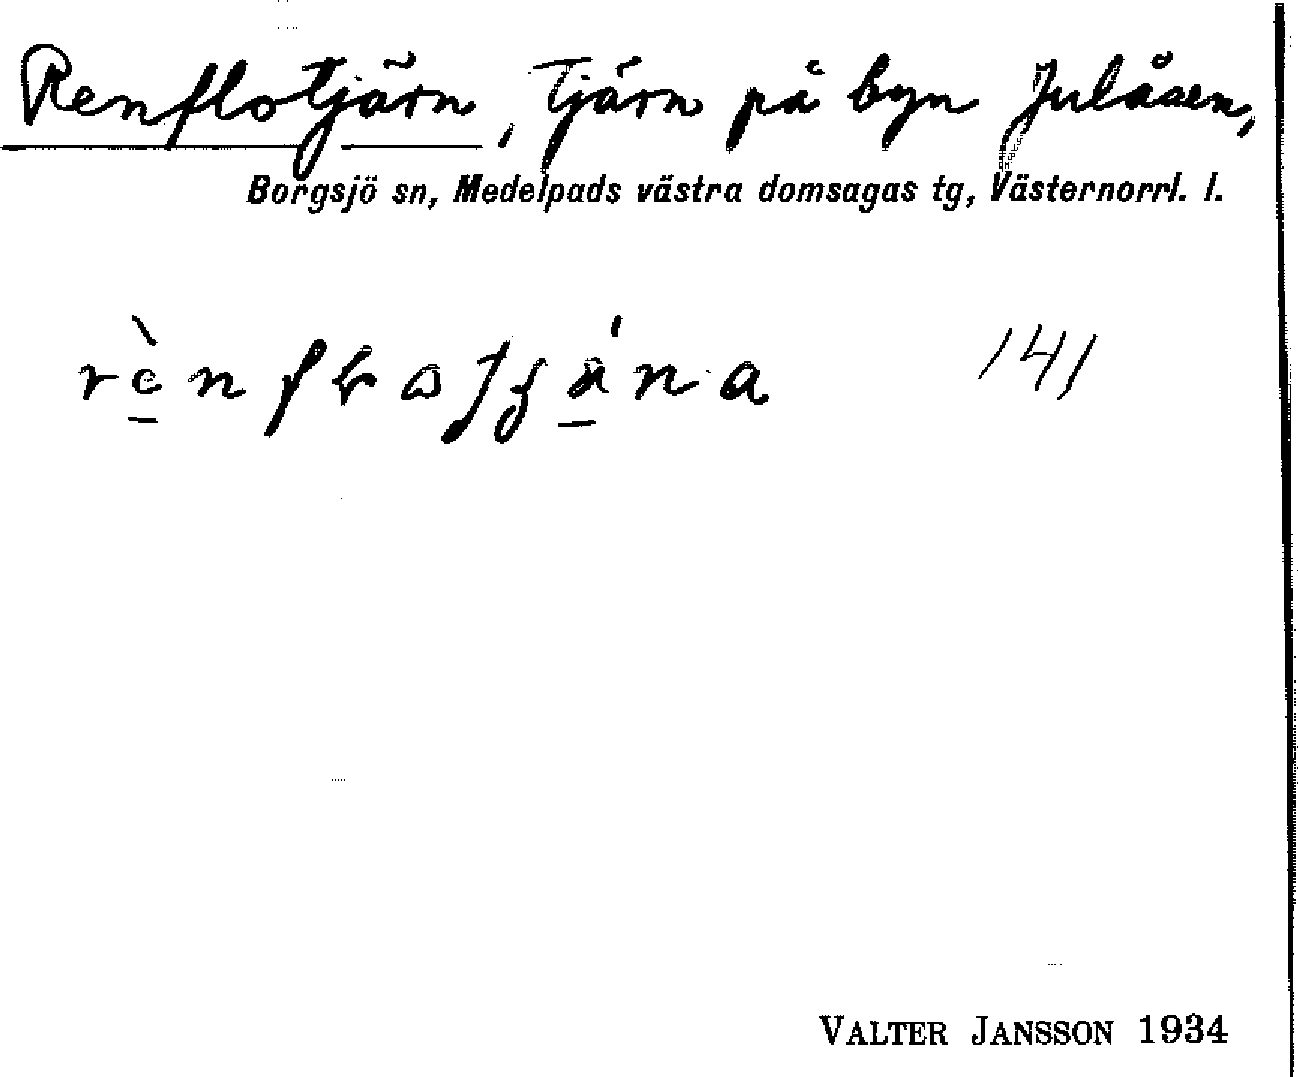 Renflotjärn, Tjärn på byn Julåsen,
Borgsjö sn, Medelpads västra domsagas tg, Västernorrl. l.
141
VALTER JANSSON 1934